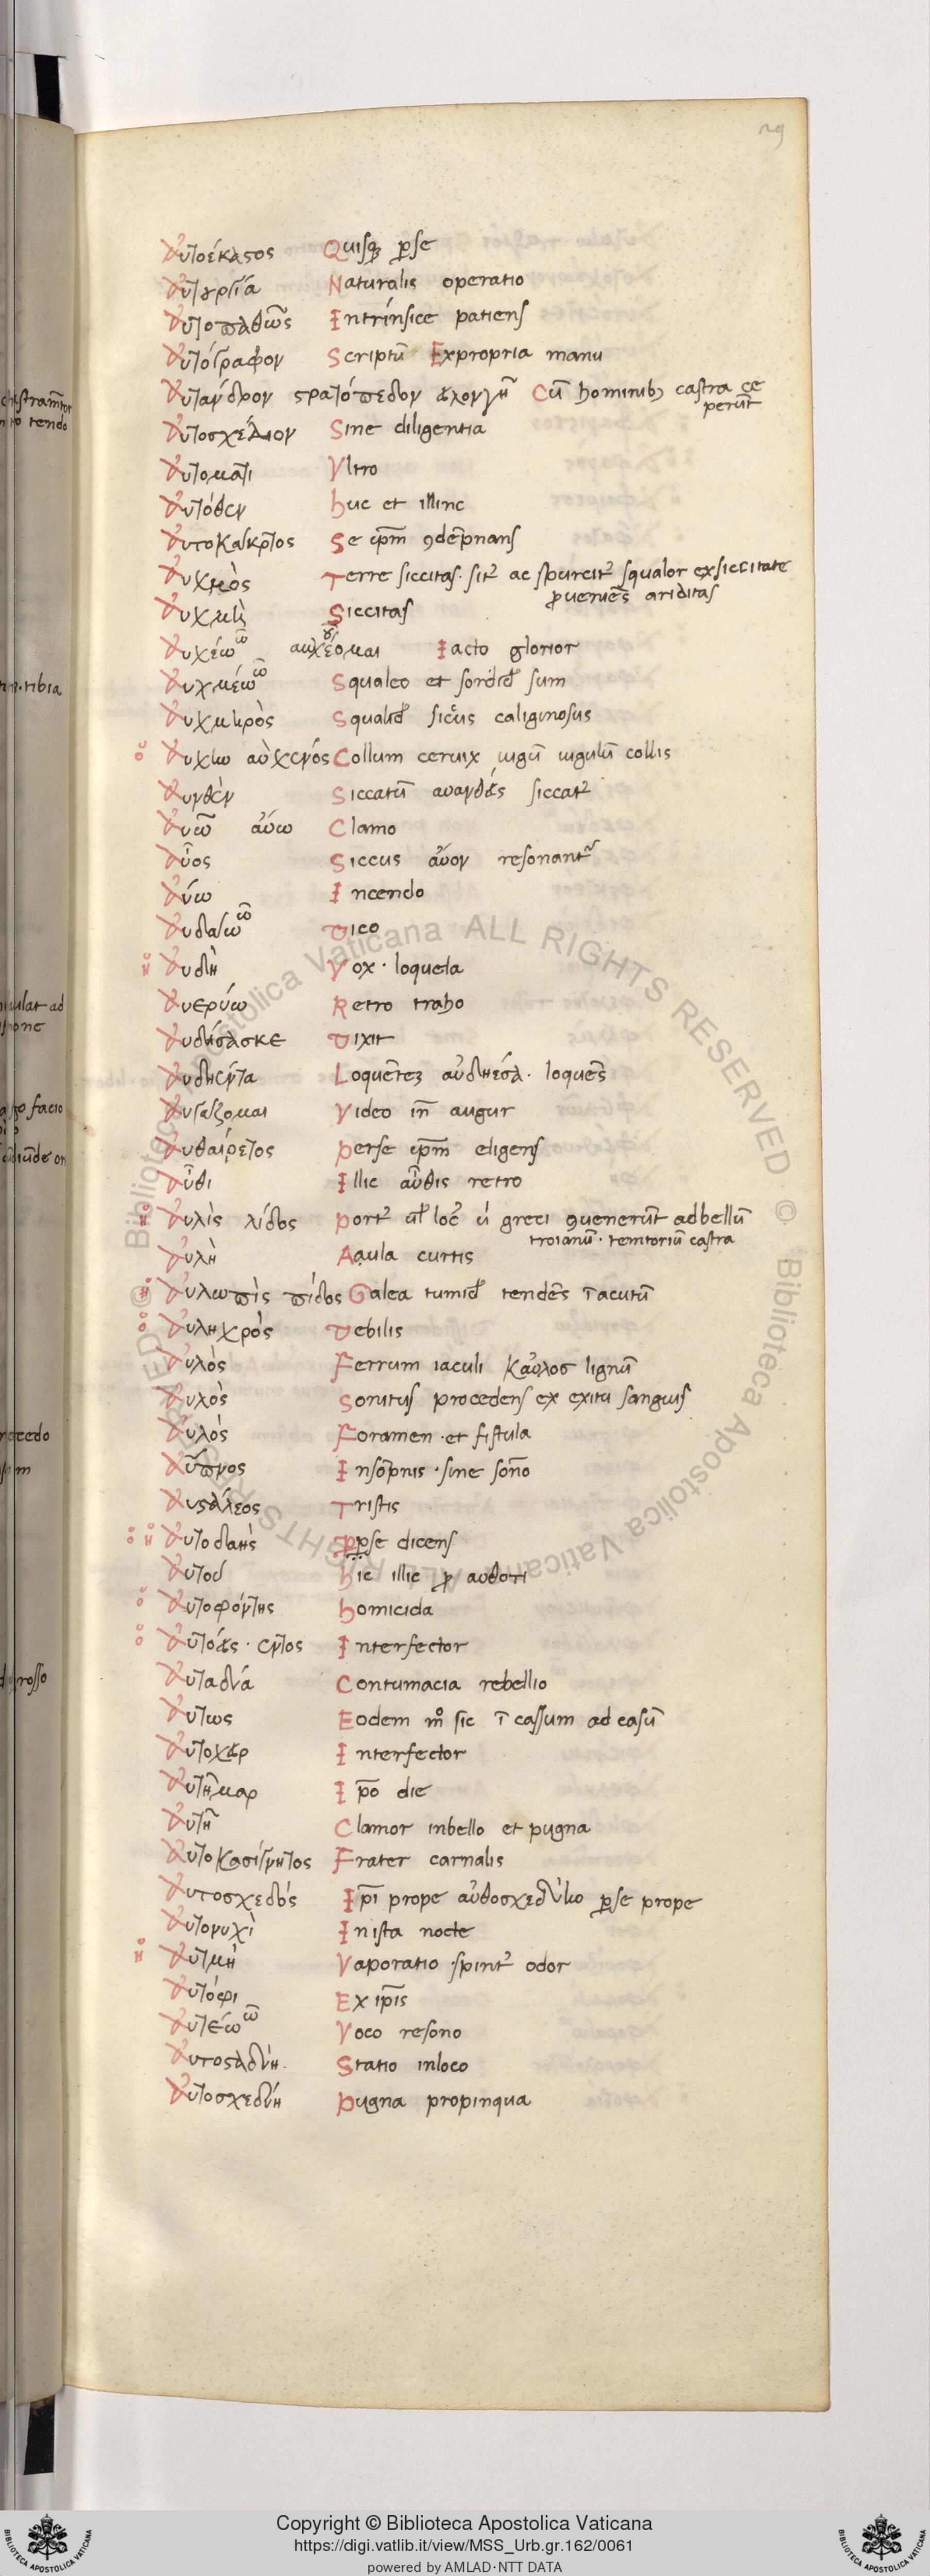 29
αὐτοέκαστος Quisq; ꝑse
αὐτουργία Naturalis operatio
αὐτοπαθῶς Intrinsice patiens
αὐτόγραφον Scriptū Expropria manu
αὐτανδρον στρατόπεδον Cū hominibꝫ castra ce
perūt
αὐτοσχέδιον Sine diligentia
αὐτοματι Vltro
αὐτόθεν huc et illinc
αὐτοκατκριτος Se ip̄m ꝯdēpnans
αὐχμὸς Terre siccitas· sit᷑ ac spurcit᷑ squalor exsiccitate
ꝓueniēs ariditas
αὐχμὴ Siccitas
αὐχέω ῶ αυχέομαι Iacto glorior
αὐχμέω ῶ Squaleo et sordid᷑ sum
αὐχμηρὸς Squalid᷑ siccus caliginosus
ὁ αὐχὴν αὐχένος Collum ceruix iugū iugulū collis
αὐνθὲν Siccatū αυανθείς siccat᷑
αὐῶ αὔω Clamo
αὖος Siccus αὖον resonant᷑
αὔω Incendo
αὐδάω ῶ Dico
ἡ αὐδὴ Vox· loquela
αὐερύω Retro traho
αὐδήσασκε Dixit
αὐδήεντα Loquētez αὐδήεσα· loquēs
αὐγάζομαι Video in̄ augur
αὐθαίρετος perse ip̄m eligens
αὖθι Illic αὖθις retro
ἡ αὐλὶς λίδος port᷑ ul̓ loc᷑ u̓ greci ꝯuenerūt adbellū
troianū· territoriū castra
αὐλὴ Aaula curtis
ἡ αὐλωπὶς πίδος Galea tumid᷑ tendēs ī acutū
ὁ αὐληχρὸς Debilis
αὐλὸς Ferrum iaculi καὐλοσ lignū
αὐλὸς Sonitus procedens ex exitu sanguis
αὐλὸς Foramen· et fistula
αὔπνος Insōpnis· sine son̄o
αὐσταλεος Tristis
ὁ ἡ αὐτοδαης ꝑꝑse dicens
αὐτοῦ hic illic ꝓ αυθοτι
ὁ αὐτοφόντης homicida
ὁ αὐτόεις· εντος Interfector
αὐταδία Contumacia rebellio
αὔτως Eodem mͦ sic ī cassum ad casū
αὐτόχειρ Interfector
αὐτῆμαρ Ip̄o die
αὐτὴ Clamor inbello et pugna
αὐτοκασίγνητος Frater carnalis
αὐτοσχεδὸς Ip̄i prope αὐθοσχεδίω ꝑse prope
αὐτονυχὶ Inista nocte
ἡ αὐτμὴ Vaporatio· spirit᷑ odor
αὐτόφι Ex ip̄is
αὐτέω ῶ Voco resono
αὐτοσταδίη· Statio inloco
αὐτοσχεδίη pugna propinqua
Copyright © Biblioteca Apostolica Vaticana
https://digi.vatlib.it/view/MSS_Urb.gr.162/0061
powered by AMLAD·NTT DATA